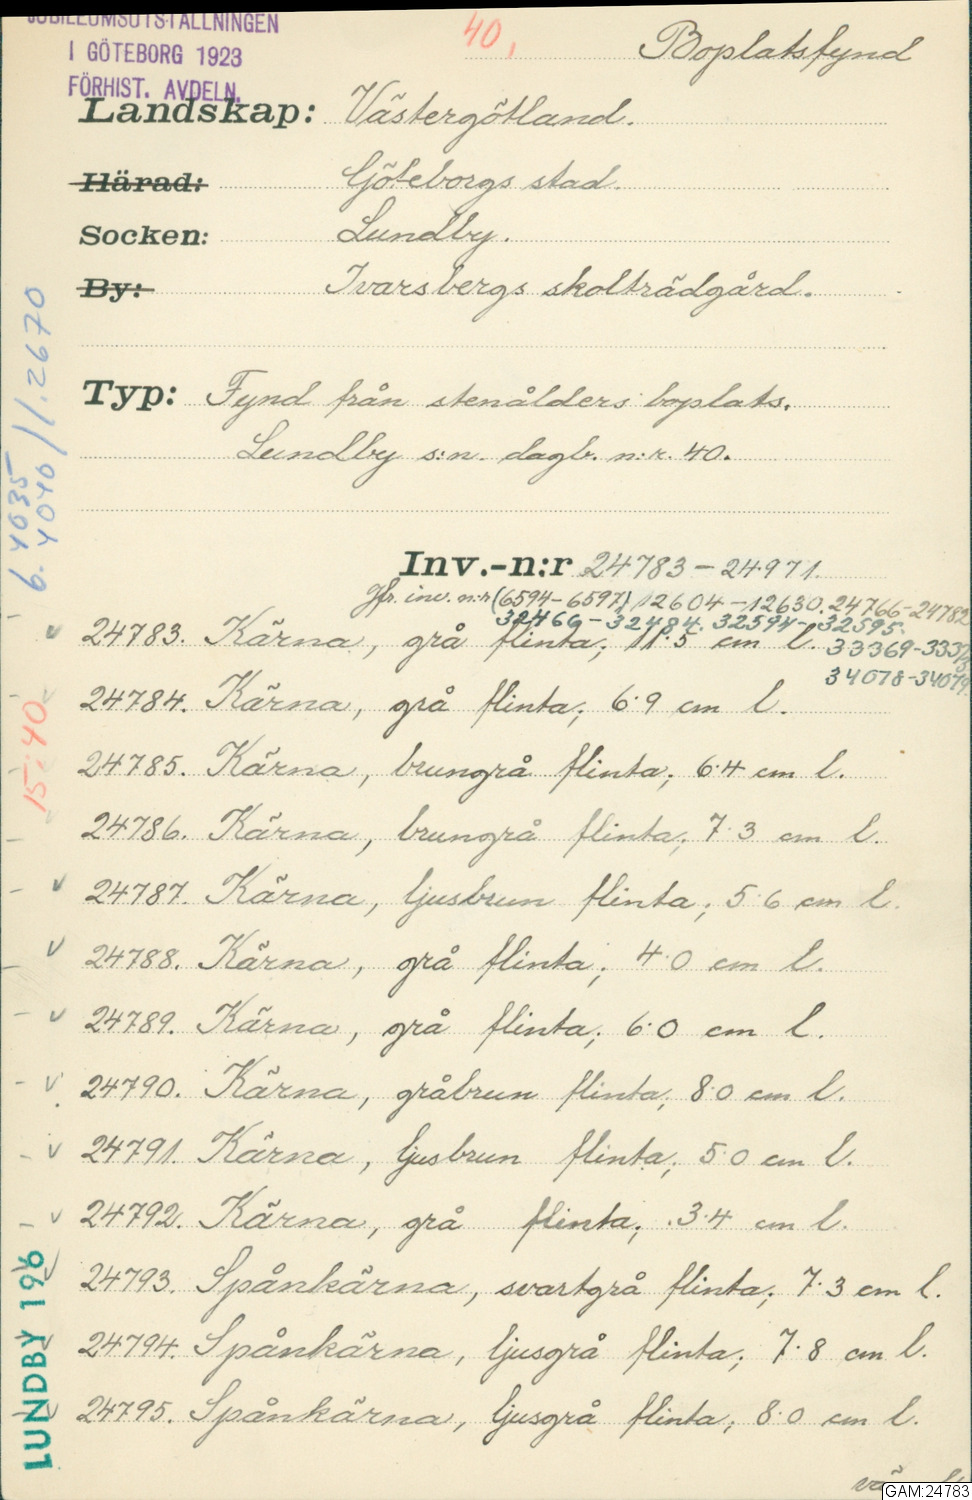 JUBILEUMSUTSTÄLLNINGEN
I GÖTEBORG 1923
FÖRHIST. AVDELN.
40,
Boplatsfynd
Landskap: Västergötland.
Härad: Göteborgs stad.
Socken: Lundby.
By: Ivarsbergs skolträdgård.
Typ: Fynd från stenålders boplats.
Lundby s:n. dagb. n:r. 40.
6.4035
6.4040 //.2670
Inv.-n:r 24783 – 24971.
Jfr. inv. n:r (6594-6597) 12604-12630. 24766-24782
32466-32484. 32594-32595.
33369-3337
34078-34079.
24783. Kärna, grå flinta; 11.5 cm l.
24784. Kärna, grå flinta; 6.9 cm l.
24785. Kärna, brungrå flinta; 6.4 cm l.
24786. Kärna, brungrå flinta; 7.3 cm l.
24787. Kärna, ljusbrun flinta; 5.6 cm l.
24788. Kärna, grå flinta; 4.0 cm l.
24789. Kärna, grå flinta; 6.0 cm l.
24790. Kärna, gråbrun flinta; 8.0 cm l.
24791. Kärna, ljusbrun flinta; 5.0 cm l.
24792. Kärna, grå flinta; 3.4 cm l.
24793. Spånkärna, svartgrå flinta; 7.3 cm l.
24794. Spånkärna, ljusgrå flinta; 7.8 cm l.
24795. Spånkärna, ljusgrå flinta; 8.0 cm l.
15:40
LUNDBY 196
GAM:24783